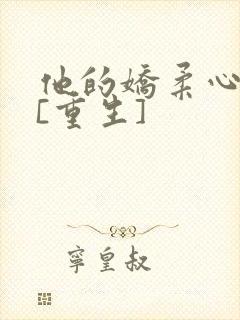 他的嬌柔心
[重生]
寧皇叔